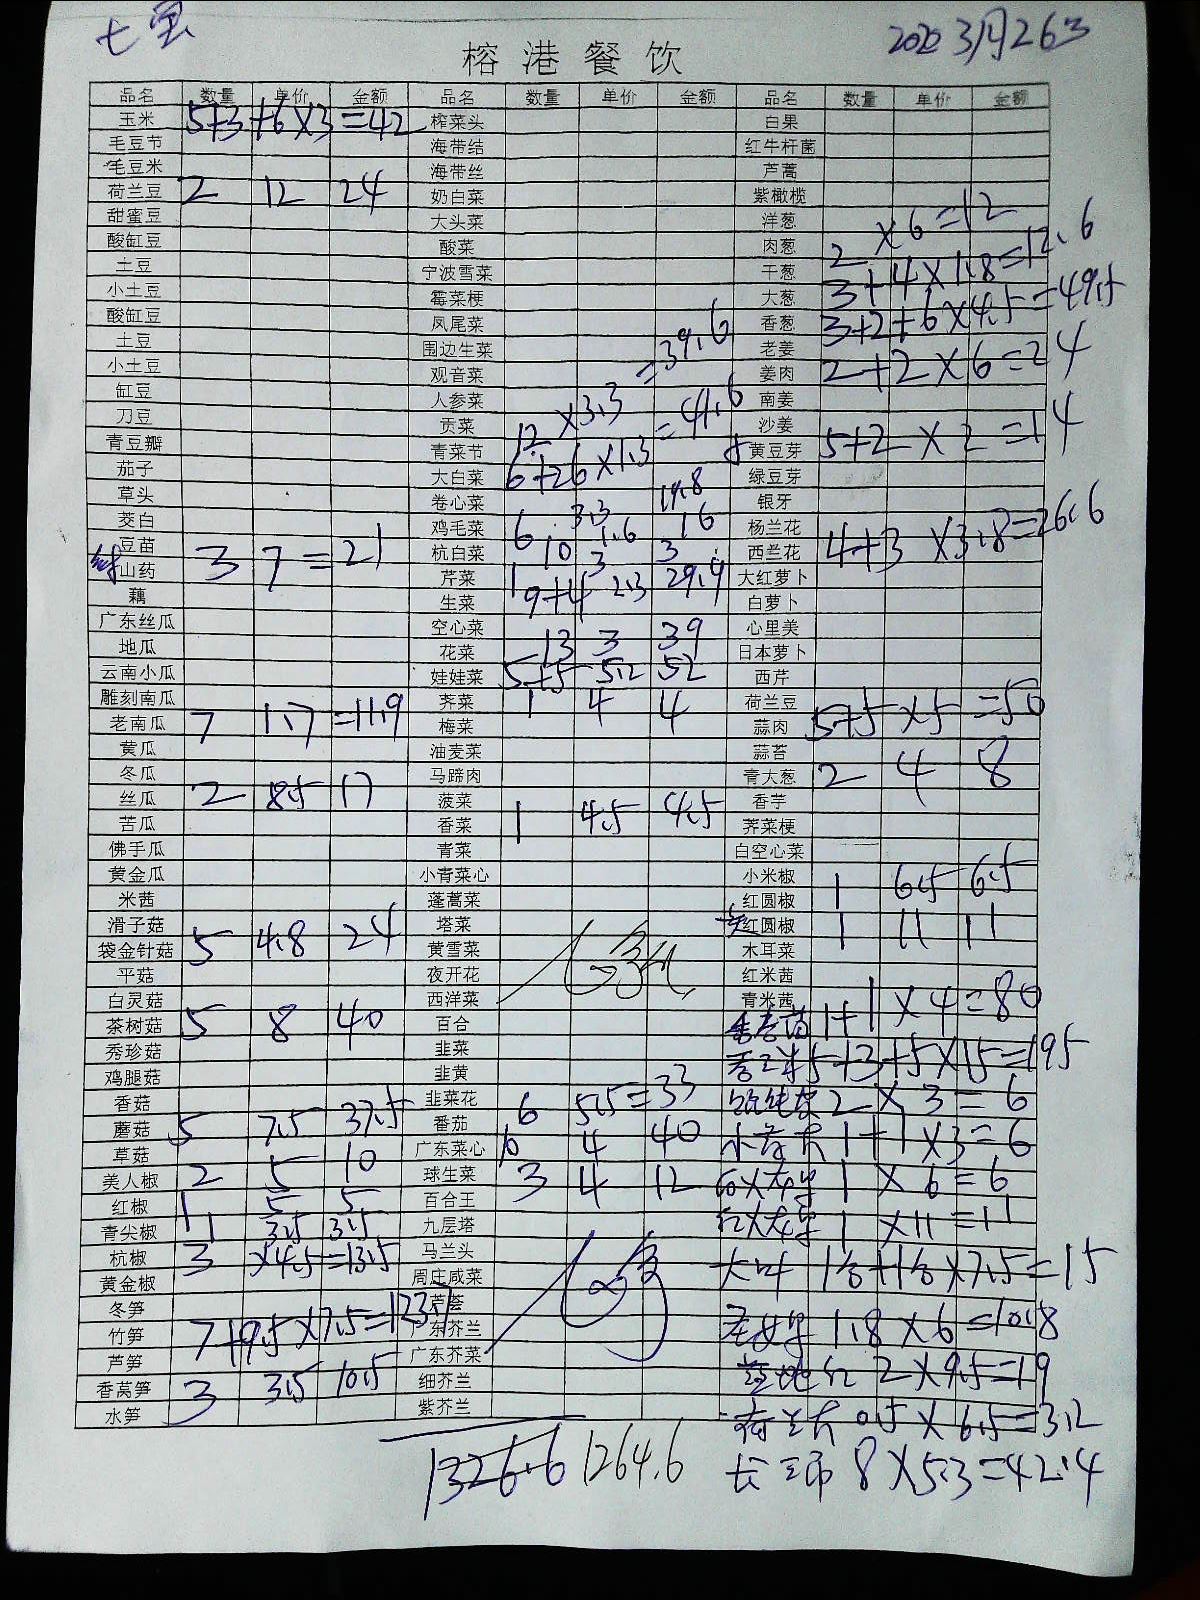 七宝
2022 3月26日
榕港餐饮
品名 数量 单价 金额 品名 数量 单价 金额 品名 数量 单价 金额
玉米 5+3+6×3=42 榨菜头 白果
毛豆节 海带结 红牛杆菌
毛豆米 海带丝 芦蒿
荷兰豆 2 12 24 奶白菜 紫橄榄
甜蜜豆 大头菜 洋葱
酸缸豆 酸菜 肉葱 2×6=12
土豆 宁波雪菜 干葱
小土豆 霉菜梗 大葱 3+4×1.8=12.6
酸缸豆 凤尾菜 香葱 3+2+6×4.5=49.5
土豆 围边生菜 老姜
小土豆 观音菜 姜肉 2+2×6=24
缸豆 人参菜 南姜
刀豆 贡菜 12×3.3=39.6 沙姜
青豆瓣 青菜节 黄豆芽 5+2×2=14
茄子 大白菜 6+26×1.3=41.6 绿豆芽
草头 卷心菜 银牙
茭白 鸡毛菜 6 3.3 19.8 杨兰花
豆苗 杭白菜 10 1.6 16 西兰花 4+3×3.8=26.6
山药 3 7=21 芹菜 1 3 3 大红萝卜
藕 生菜 9+4 2.3 29.9 白萝卜
广东丝瓜 空心菜 心里美
地瓜 花菜 13 3 39 日本萝卜
云南小瓜 娃娃菜 5+5 5.2 52 西芹
雕刻南瓜 荠菜 1 4 4 荷兰豆
老南瓜 7 1.7=11.9 梅菜 蒜肉 5+5×5=50
黄瓜 油麦菜 蒜苔
冬瓜 马蹄肉 青大葱 2 4 8
丝瓜 2 8.5 17 菠菜 香芋
苦瓜 香菜 1 4.5 4.5 荠菜梗
佛手瓜 青菜 白空心菜
黄金瓜 小青菜心 小米椒
米茜 蓬蒿菜 红圆椒 1 6.5 6.5
滑子菇 塔菜 红圆椒 1 11 11
袋金针菇 5 4.8 24 黄雪菜 木耳菜
平菇 夜开花 红米茜
白灵菇 西洋菜 青米茜
茶树菇 5 8 40 百合 1+1×4=80
秀珍菇 韭菜 5+3+5×15=195
鸡腿菇 韭黄
香菇 韭菜花 6 5.5=33 2×3=6
蘑菇 5 7.5 37.5 番茄
草菇 广东菜心 10 4 40 1+1×3=6
美人椒 2 5 10 球生菜 3 4 12 1×6=6
红椒 1 5 5 百合王
青尖椒 1 3.5 3.5 九层塔 1×11=11
杭椒 3×4.5=13.5 马兰头 大叶 1合+1合×7.5=15
黄金椒 周庄咸菜
冬笋 芦荟
竹笋 7+9.5×7.5=123.7 广东芥兰 1.8×6=10.8
芦笋 广东芥菜
香莴笋 3 3.5 10.5 细芥兰 2×9.5=19
水笋 紫芥兰 0.5×6.5=3.2
1326.6 1264.6 8×5.3=42.4